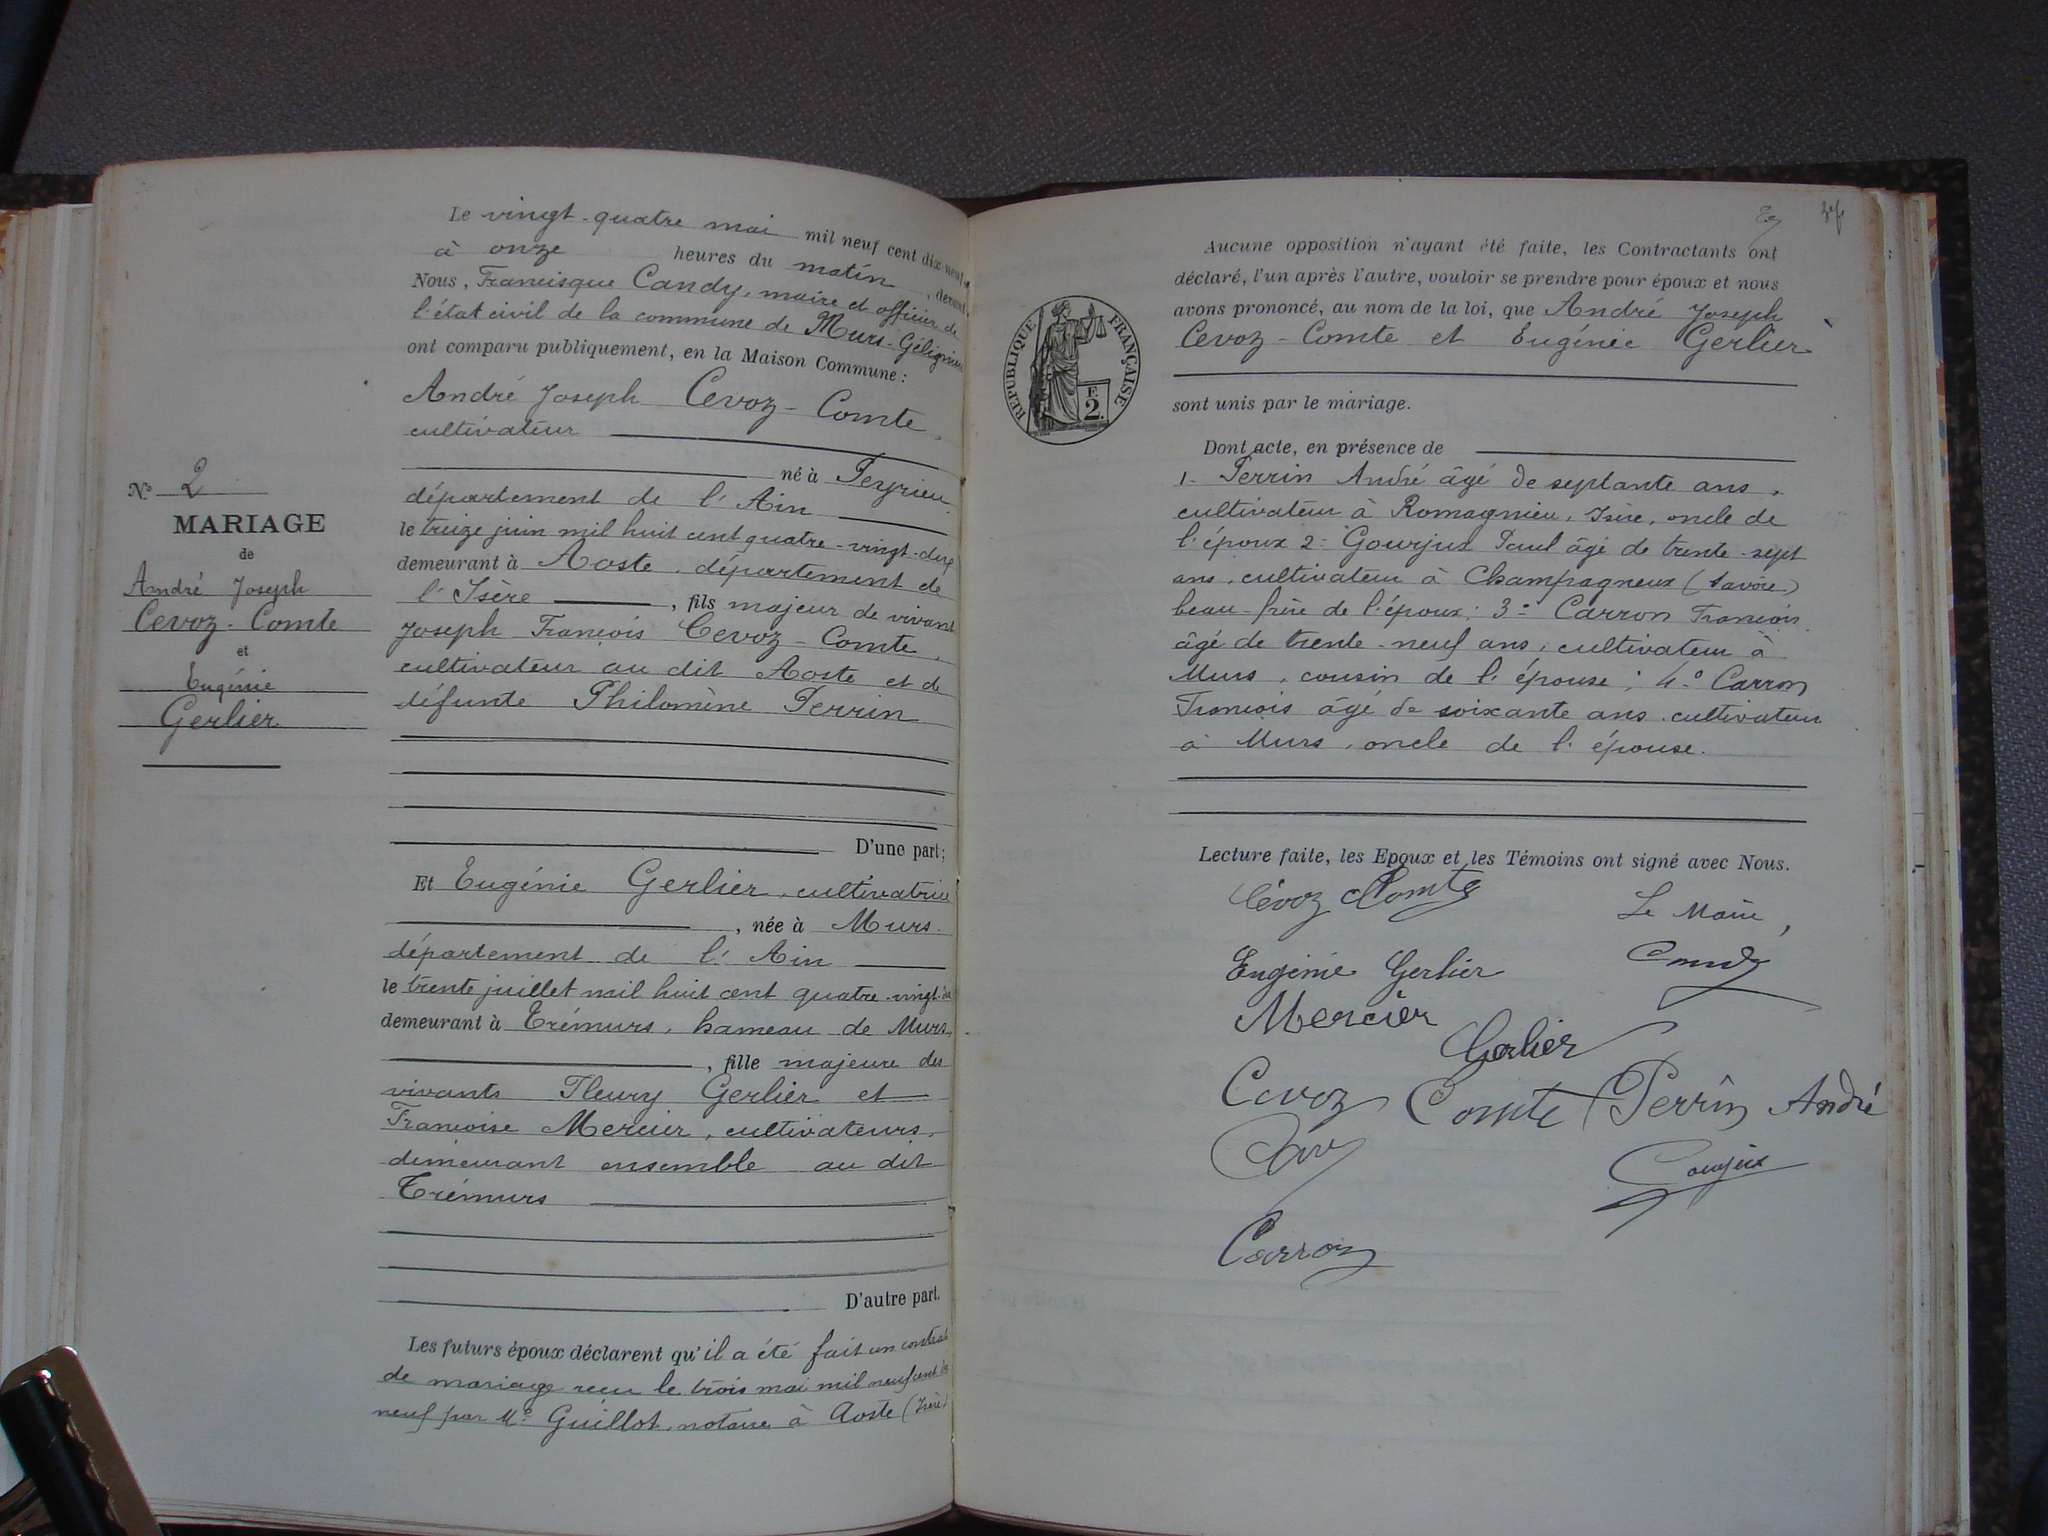 Le vingt-quatre mai mil neuf cent dix-neuf
à onze heures du matin, devant
Nous, Francisque Candy, maire et officier de
l'état civil de la commune de Murs-Gélignieux
ont comparu publiquement, en la Maison Commune :
André Joseph Cevoz-Comte,
cultivateur
né à Peyrieu
département de l'Ain
le treize juin mil huit cent quatre-vingt-deux
demeurant à Aoste, département de
l'Isère, fils majeur de vivant
Joseph François Cevoz-Comte,
cultivateur au dit Aoste et de
défunte Philomène Perrin
D'une part;
Et Eugénie Gerlier, cultivatrice
, née à Murs.
département de l'Ain
le trente juillet mil huit cent quatre-vingt
demeurant à Trémurs, hameau de Murs,
, fille majeure des
vivants Fleury Gerlier et
Françoise Mercier, cultivateurs,
demeurant ensemble au dit
Trémurs
D'autre part.
Les futurs époux déclarent qu'il a été fait un contrat
de mariage reçu le trois mai mil neuf cent dix
neuf par Me Guillot, notaire à Aoste (Isère)
No 2
MARIAGE
de
André Joseph
Cevoz-Comte
et
Eugénie
Gerlier
Aucune opposition n'ayant été faite, les Contractants ont
déclaré, l'un après l'autre, vouloir se prendre pour époux et nous
avons prononcé, au nom de la loi, que André Joseph
Cevoz-Comte et Eugénie Gerlier
sont unis par le mariage.
RÉPUBLIQUE FRANÇAISE
F.
2.
Dont acte, en présence de
1- Perrin André âgé de septante ans,
cultivateur à Romagnieu, Isère, oncle de
l'époux 2= Gourjux Paul âgé de trente-sept
ans, cultivateur à Champagneux (Savoie)
beau-frère de l'époux; 3= Carron François
âgé de trente-neuf ans, cultivateur à
Murs, cousin de l'épouse; 4.o Carron
François âgé de soixante ans, cultivateur
à Murs, oncle de l'épouse.
Lecture faite, les Epoux et les Témoins ont signé avec Nous.
Cévoz Comte
Le Maire,
Eugénie Gerlier
Candy
Mercier
Gerlier
Cevoz Comte Perrin André
Gourjux
Carron